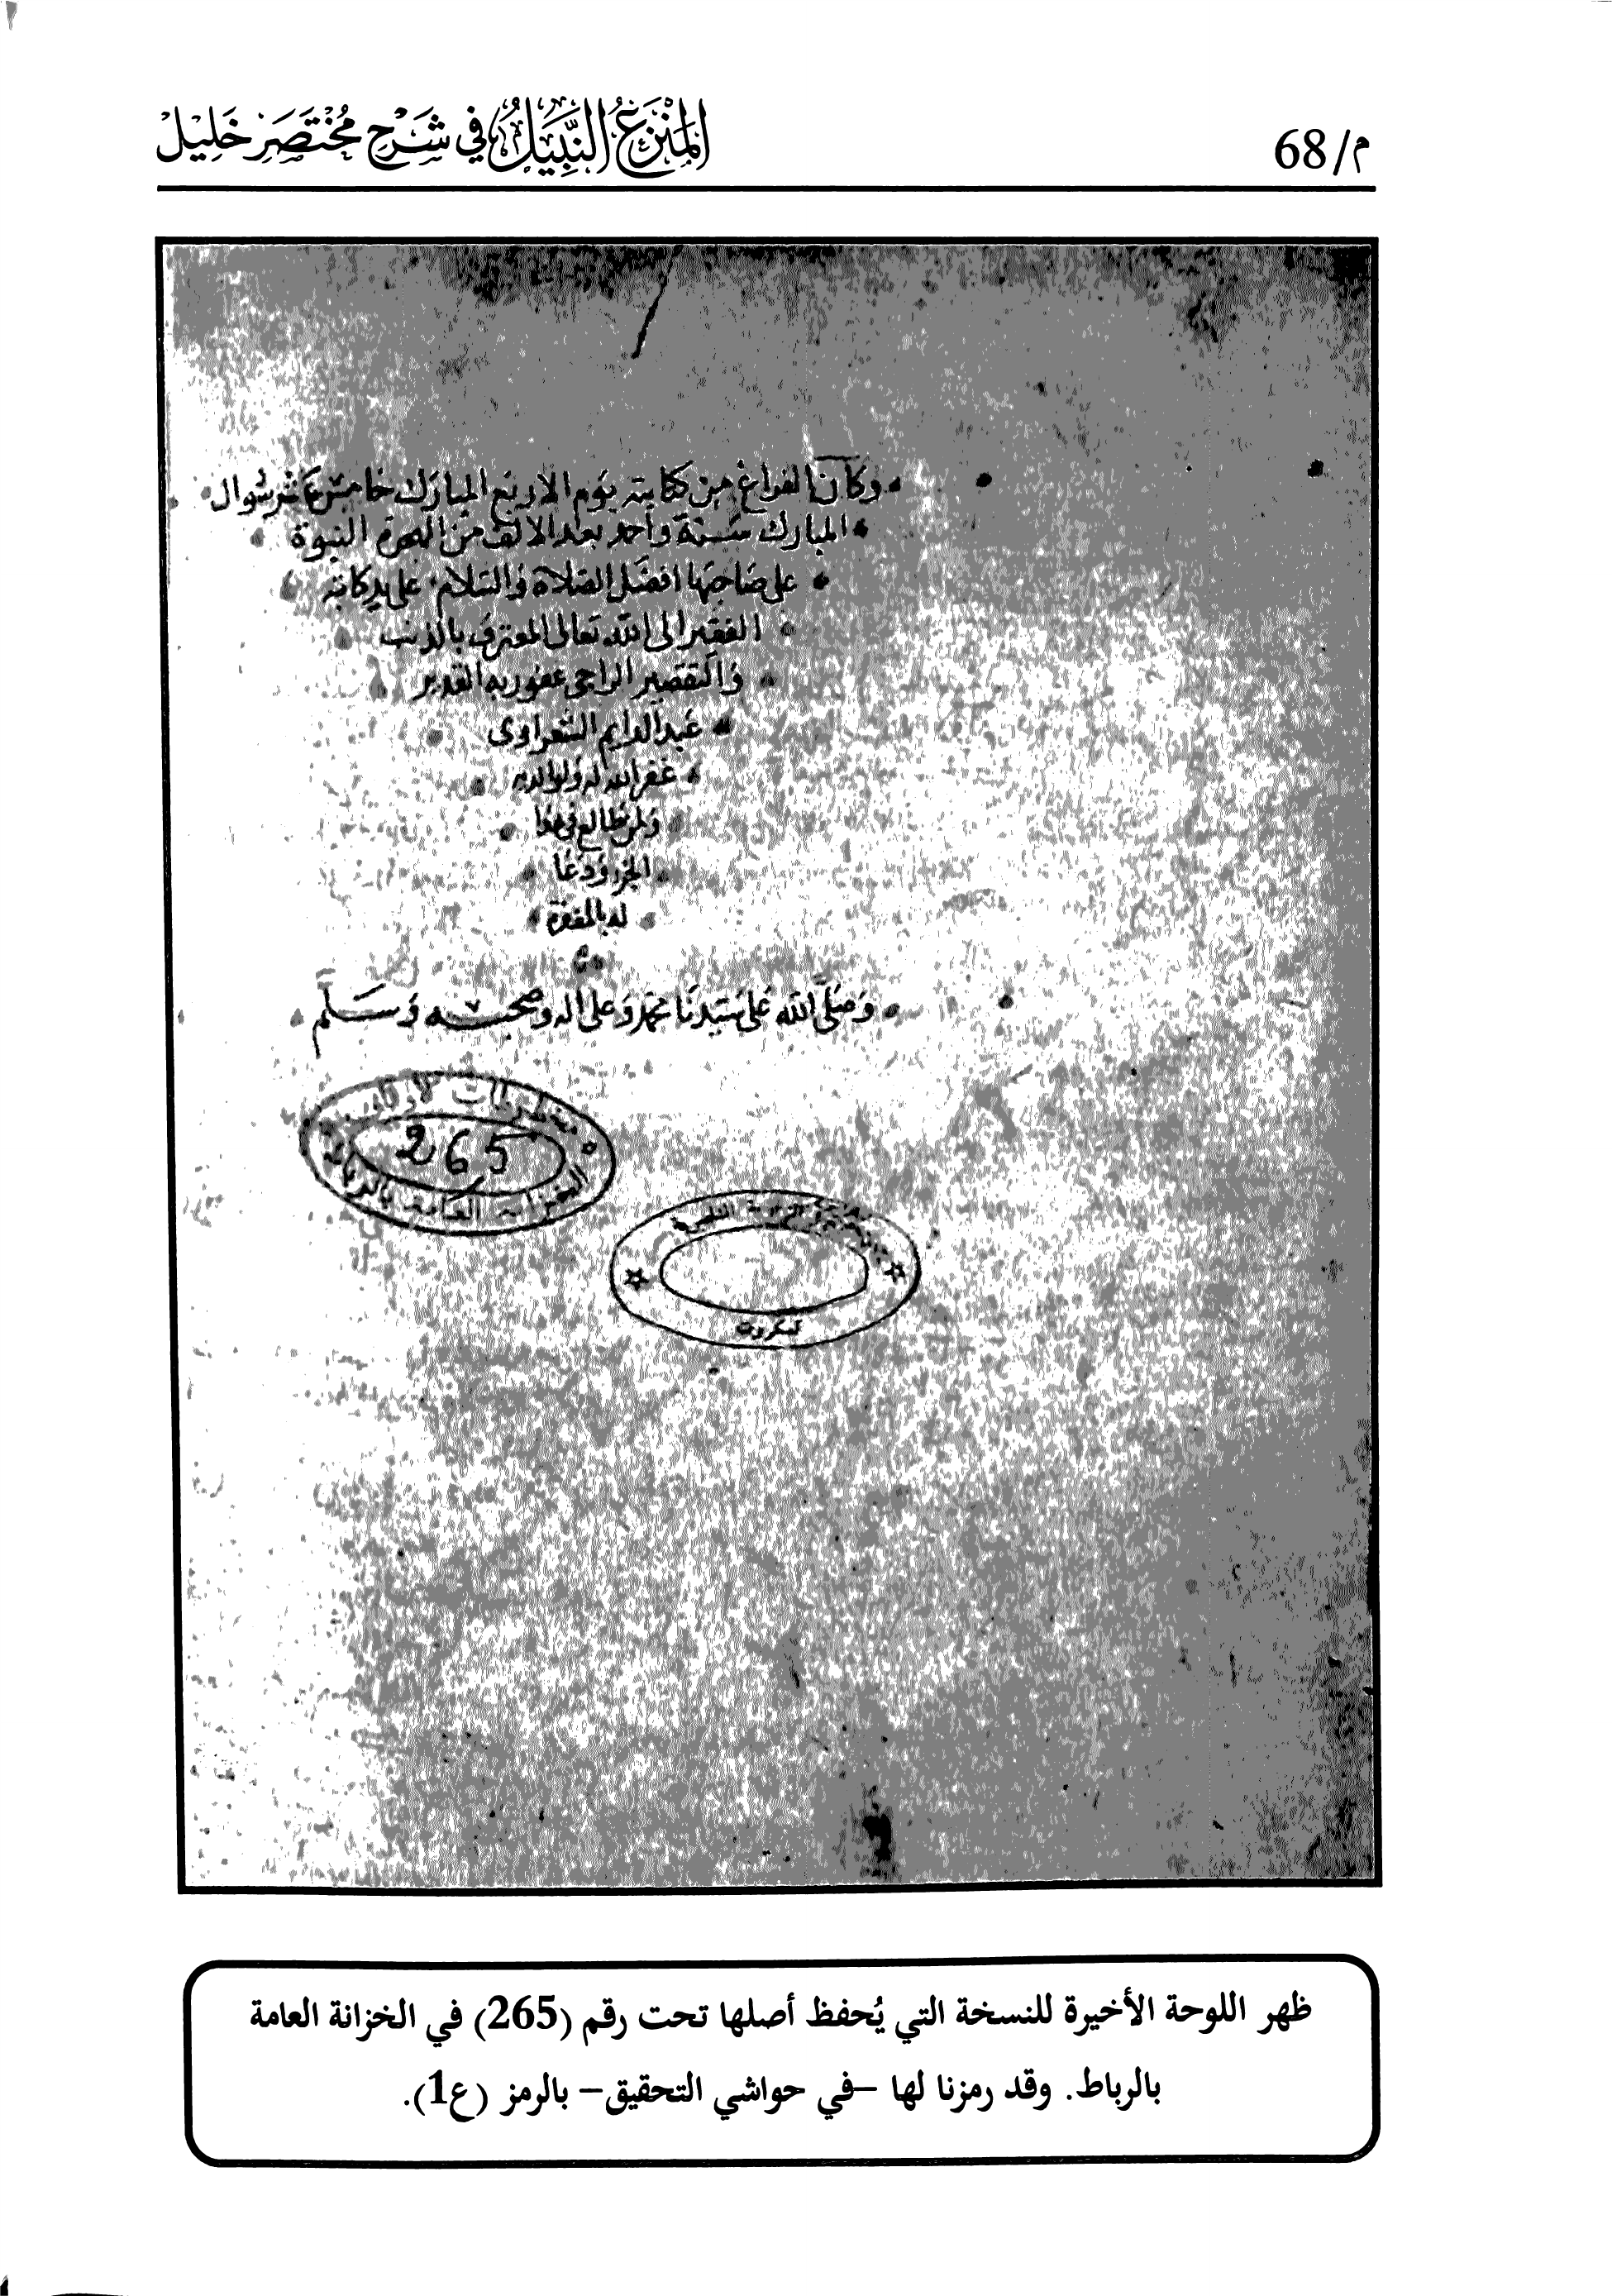 م/68
المنزع النبيل في شرح مختصر خليل
وكان الفراغ من كتابته يوم الاربع المبارك خامس عشر شوال
المبارك سنة واحد بعد الالف من الهجرة النبوة
على صاحبها افضل الصلاة والسلام على يد كاتبه
الفقير الى الله تعالى المعترف بالذنب
والتقصير الراجى عفو ربه القدير
عبد الدايم الشعراوى
غفر الله له ولوالديه
ولمن طالع فى هذا
الجزء ودعا
له بالمغفرة
وصلى الله على سيدنا محمد وعلى اله وصحبه وسلم
265
الخزانة العامة بالرباط
الناصرية
تمكروت
ظهر اللوحة الأخيرة للنسخة التي يُحفظ أصلها تحت رقم (265) في الخزانة العامة
بالرباط. وقد رمزنا لها –في حواشي التحقيق– بالرمز (ع1).